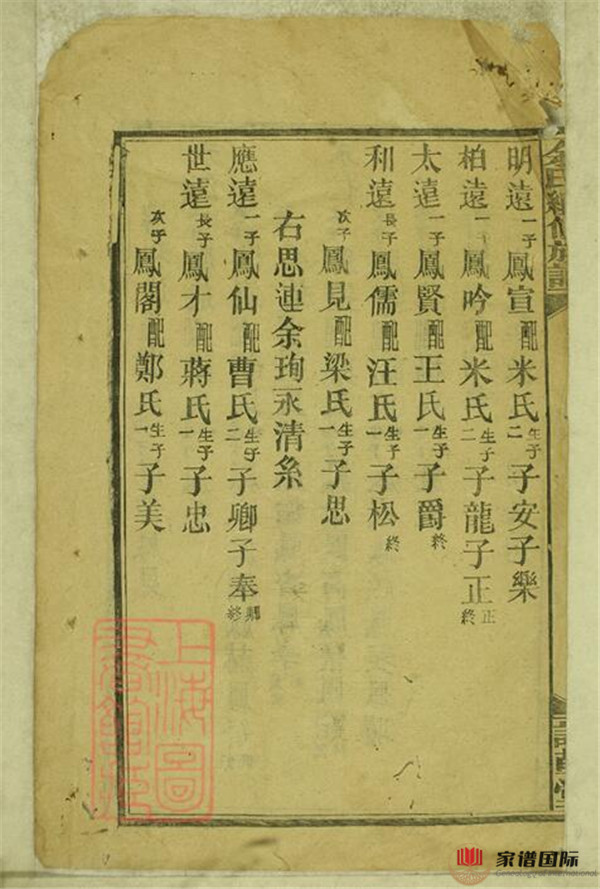 余氏續修族譜
明遠一子鳳宣配米氏生子二子安子樂
柏遠一子鳳吟配米氏生子二子龍子正正終
太遠一子鳳賢配王氏生子一子爵終
和遠長子鳳儒配汪氏生子一子松終
次子鳳見梁氏生子一子思
右思連余珣永清糸
應遠一子鳳仙配曹氏生子二子卿子奉卿終
世遠長子鳳才配蔣氏生子一子忠
次子鳳閣配鄭氏生子一子美
上海圖書館藏
家谱国际